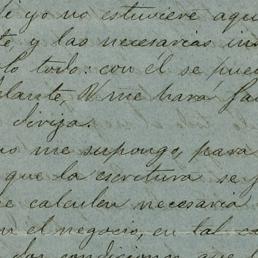 si yo no estuviere aqui
y las necesarias in
lo todo: con él se pue
adelante, V me hará fa
diriza.
no me supongo, para
que la escritura se
e calculen necesaria
n el negocio, en tal ca
las condiciones que